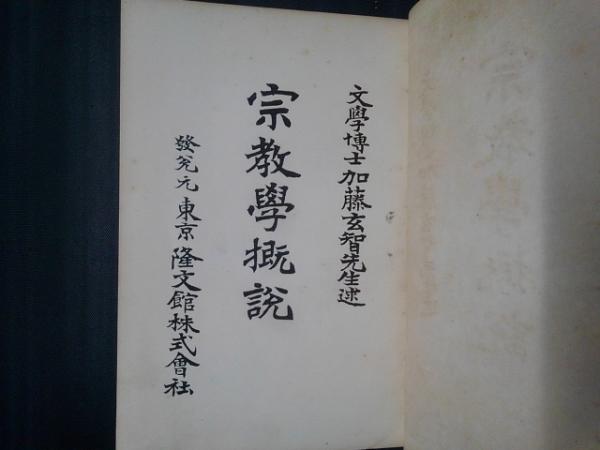 文學博士加藤玄智先生述
宗教學概説
發兌元 東京 隆文館株式會社